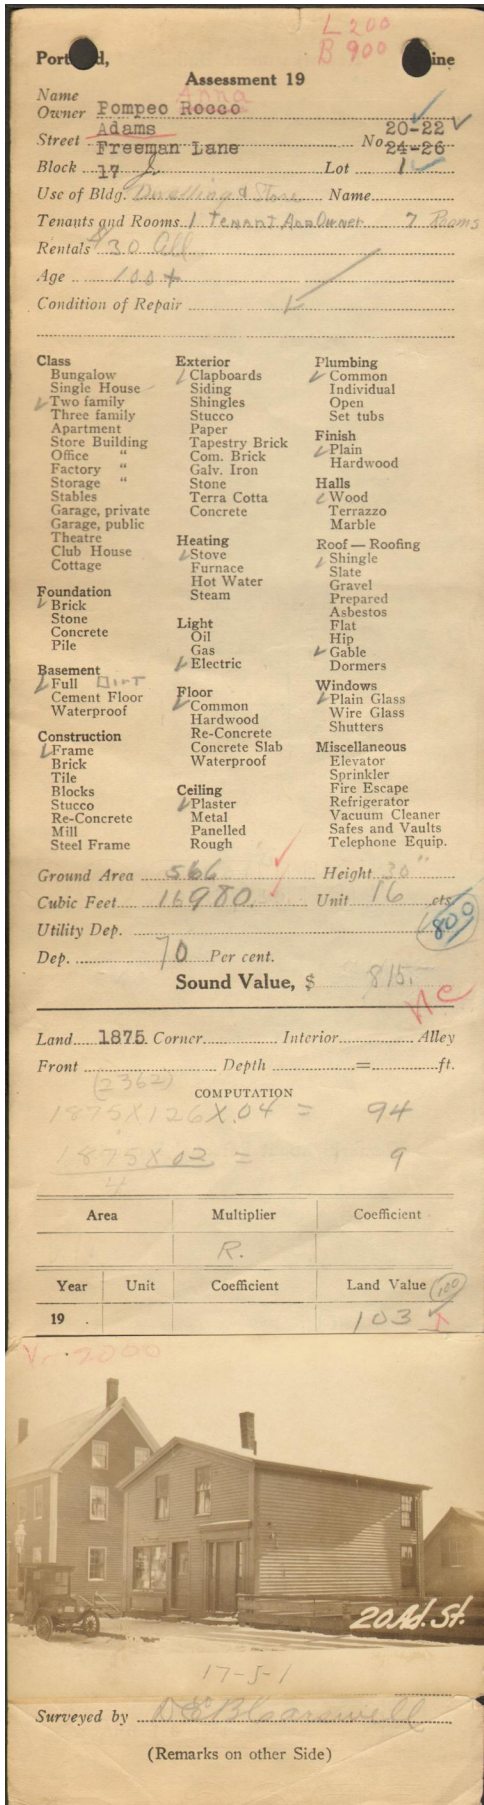 L 200
B 900
Port d, ine
Assessment 19
Name Anna
Owner Pompeo Rocco
Adams 20-22
Street Freeman Lane No. 24-26
Block 17 J Lot 1
Use of Bldg. Dwelling & Store Name
Tenants and Rooms 1 Tenant And Owner 7 Rooms
Rentals $30 All
Age 100+
Condition of Repair
Class
Bungalow
Single House
Two family
Three family
Apartment
Store Building
Office "
Factory "
Storage "
Stables
Garage, private
Garage, public
Theatre
Club House
Cottage
Foundation
Brick
Stone
Concrete
Pile
Basement
Full Dirt
Cement Floor
Waterproof
Construction
Frame
Brick
Tile
Blocks
Stucco
Re-Concrete
Mill
Steel Frame
Exterior
Clapboards
Siding
Shingles
Stucco
Paper
Tapestry Brick
Com. Brick
Galv. Iron
Stone
Terra Cotta
Concrete
Heating
Stove
Furnace
Hot Water
Steam
Light
Oil
Gas
Electric
Floor
Common
Hardwood
Re-Concrete
Concrete Slab
Waterproof
Ceiling
Plaster
Metal
Panelled
Rough
Plumbing
Common
Individual
Open
Set tubs
Finish
Plain
Hardwood
Halls
Wood
Terrazzo
Marble
Roof — Roofing
Shingle
Slate
Gravel
Prepared
Asbestos
Flat
Hip
Gable
Dormers
Windows
Plain Glass
Wire Glass
Shutters
Miscellaneous
Elevator
Sprinkler
Fire Escape
Refrigerator
Vacuum Cleaner
Safes and Vaults
Telephone Equip.
Ground Area 566 Height 30"
Cubic Feet 16980 Unit 16 cts.
Utility Dep. 800
Dep. 70 Per cent.
Sound Value, $ 815.-
NC
Land 1875 Corner Interior Alley
Front Depth = ft.
(2362)
COMPUTATION
1875 X 126 X .04 = 94
1875 X 02 = 9
4
Area Multiplier Coefficient
R.
Year Unit Coefficient Land Value 100
19 103
2000
20 Ad. St.
17-J-1
Surveyed by
(Remarks on other Side)